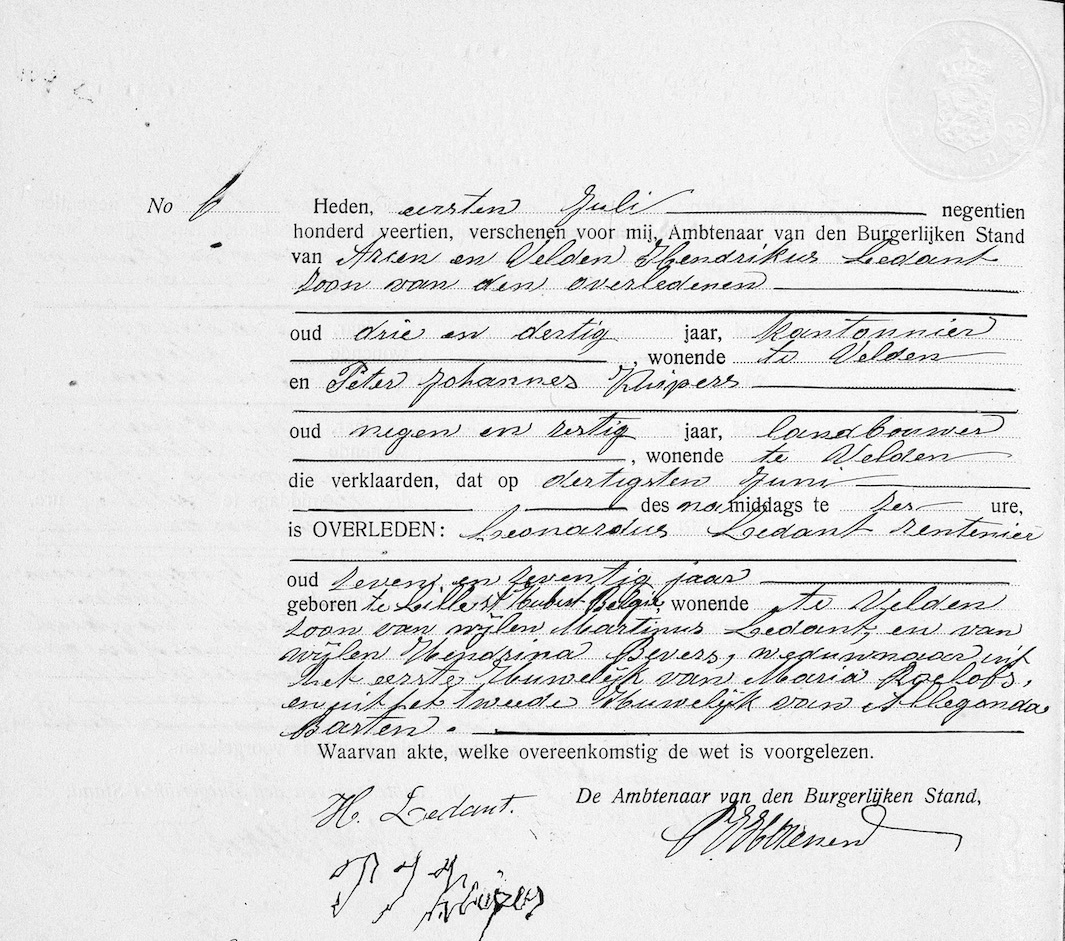 No 6 Heden, eersten Juli negentien
honderd veertien, verschenen voor mij, Ambtenaar van den Burgerlijken Stand
van Arcen en Velden Hendrikus Ledant
zoon van den overledenen
oud drie en dertig jaar, kantonnier
, wonende te Velden
en Peter Johannes Kuipers
oud negen en zestig jaar, landbouwer
, wonende te Velden
die verklaarden, dat op dertigsten Juni
des namiddags te zes ure,
is OVERLEDEN: Leonardus Ledant rentenier
oud zeven en zeventig jaar
geboren te Lille St Hubert België, wonende te Velden
zoon van wijlen Martinus Ledant, en van
wijlen Hendrina Bevers, weduwnaar uit
het eerste Huwelijk van Maria Roelofs,
en uit het tweede Huwelijk van Allegonda
Barten.
Waarvan akte, welke overeenkomstig de wet is voorgelezen.
De Ambtenaar van den Burgerlijken Stand,
H. Ledant.
P J Kuipers